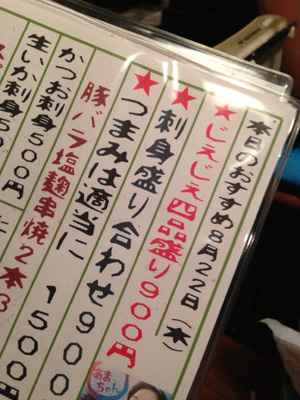 本日のおすすめ8月22日(木)
★じぇじぇ四品盛り900円
★刺身盛り合わせ900
★つまみは適当に1500
豚バラ塩麹串焼2本3
かつお刺身500円
生いか刺身50
あまちゃん